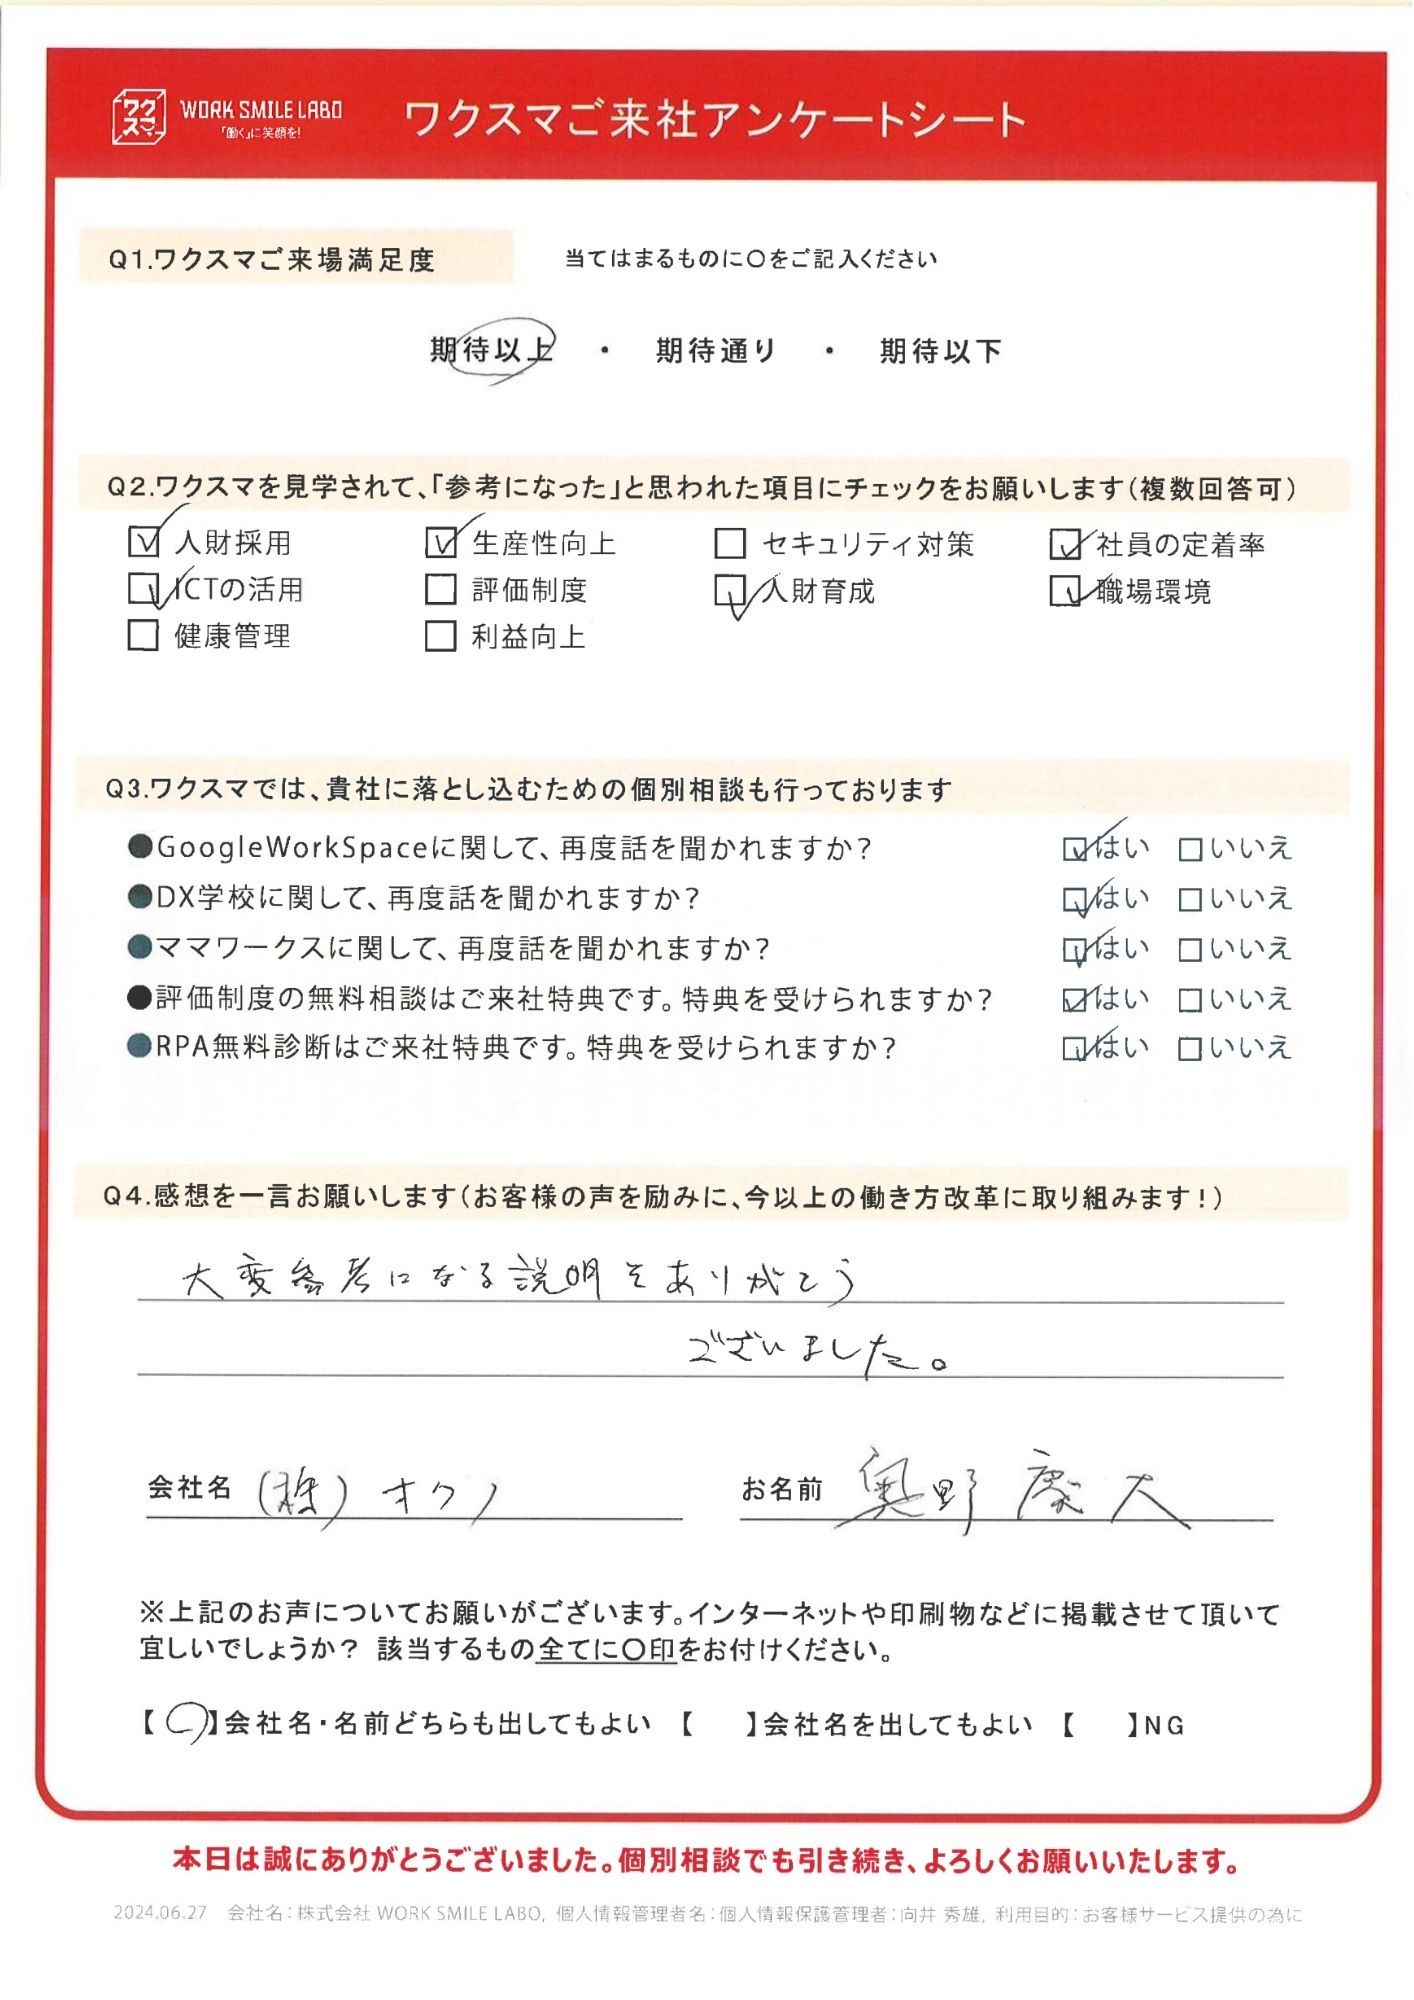 ワクスマ WORK SMILE LABO 「働く」に笑顔を! ワクスマご来社アンケートシート
Q1.ワクスマご来場満足度 当てはまるものに〇をご記入ください
期待以上 ・ 期待通り ・ 期待以下
Q2.ワクスマを見学されて、「参考になった」と思われた項目にチェックをお願いします(複数回答可)
☑ 人財採用 ☑ 生産性向上 □ セキュリティ対策 ☑ 社員の定着率
☑ ICTの活用 □ 評価制度 ☑ 人財育成 ☑ 職場環境
□ 健康管理 □ 利益向上
Q3.ワクスマでは、貴社に落とし込むための個別相談も行っております
●GoogleWorkSpaceに関して、再度話を聞かれますか? ☑はい □いいえ
●DX学校に関して、再度話を聞かれますか? ☑はい □いいえ
●ママワークスに関して、再度話を聞かれますか? ☑はい □いいえ
●評価制度の無料相談はご来社特典です。特典を受けられますか? ☑はい □いいえ
●RPA無料診断はご来社特典です。特典を受けられますか? ☑はい □いいえ
Q4.感想を一言お願いします(お客様の声を励みに、今以上の働き方改革に取り組みます!)
大変参考になる説明をありがとう
ございました。
会社名 (株)オクノ お名前 奥野 慶大
※上記のお声についてお願いがございます。インターネットや印刷物などに掲載させて頂いて
宜しいでしょうか? 該当するもの全てに〇印をお付けください。
【〇】会社名・名前どちらも出してもよい 【 】会社名を出してもよい 【 】NG
本日は誠にありがとうございました。個別相談でも引き続き、よろしくお願いいたします。
2024.06.27 会社名:株式会社 WORK SMILE LABO, 個人情報管理者名:個人情報保護管理者:向井 秀雄, 利用目的:お客様サービス提供の為に